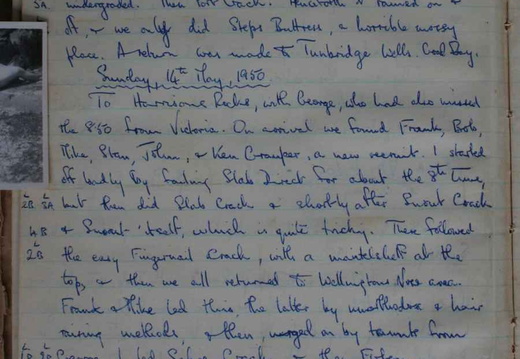 3A undergraded. Then Port Crack. Haworth & roamed on &
of, & we only did Steps Buttress, a horrible mossy
place. A return was made to Tunbridge Wells. Good Day.
Sunday, 14th May, 1950
To Harrisons Rocks, with George, who had also missed
the 8.50 from Victoria. On arrival we found Frank, Bob,
Mike, Stan, John, & Ken Grauper, a new recruit. I started
off badly by failing Slab Direct for about the 8th time,
2B 3A but then did Slab Crack & shortly after Snout Crack
4B & Snout itself, which is quite tricky. There followed
2B the easy Fingernail Crack, with a mantelshelf at the
top, & then we all returned to Wellingtons Nose area.
Frank & Mike led this, the latter by unorthodox & hair
raising methods, & then, urged on by taunts from
George, I led